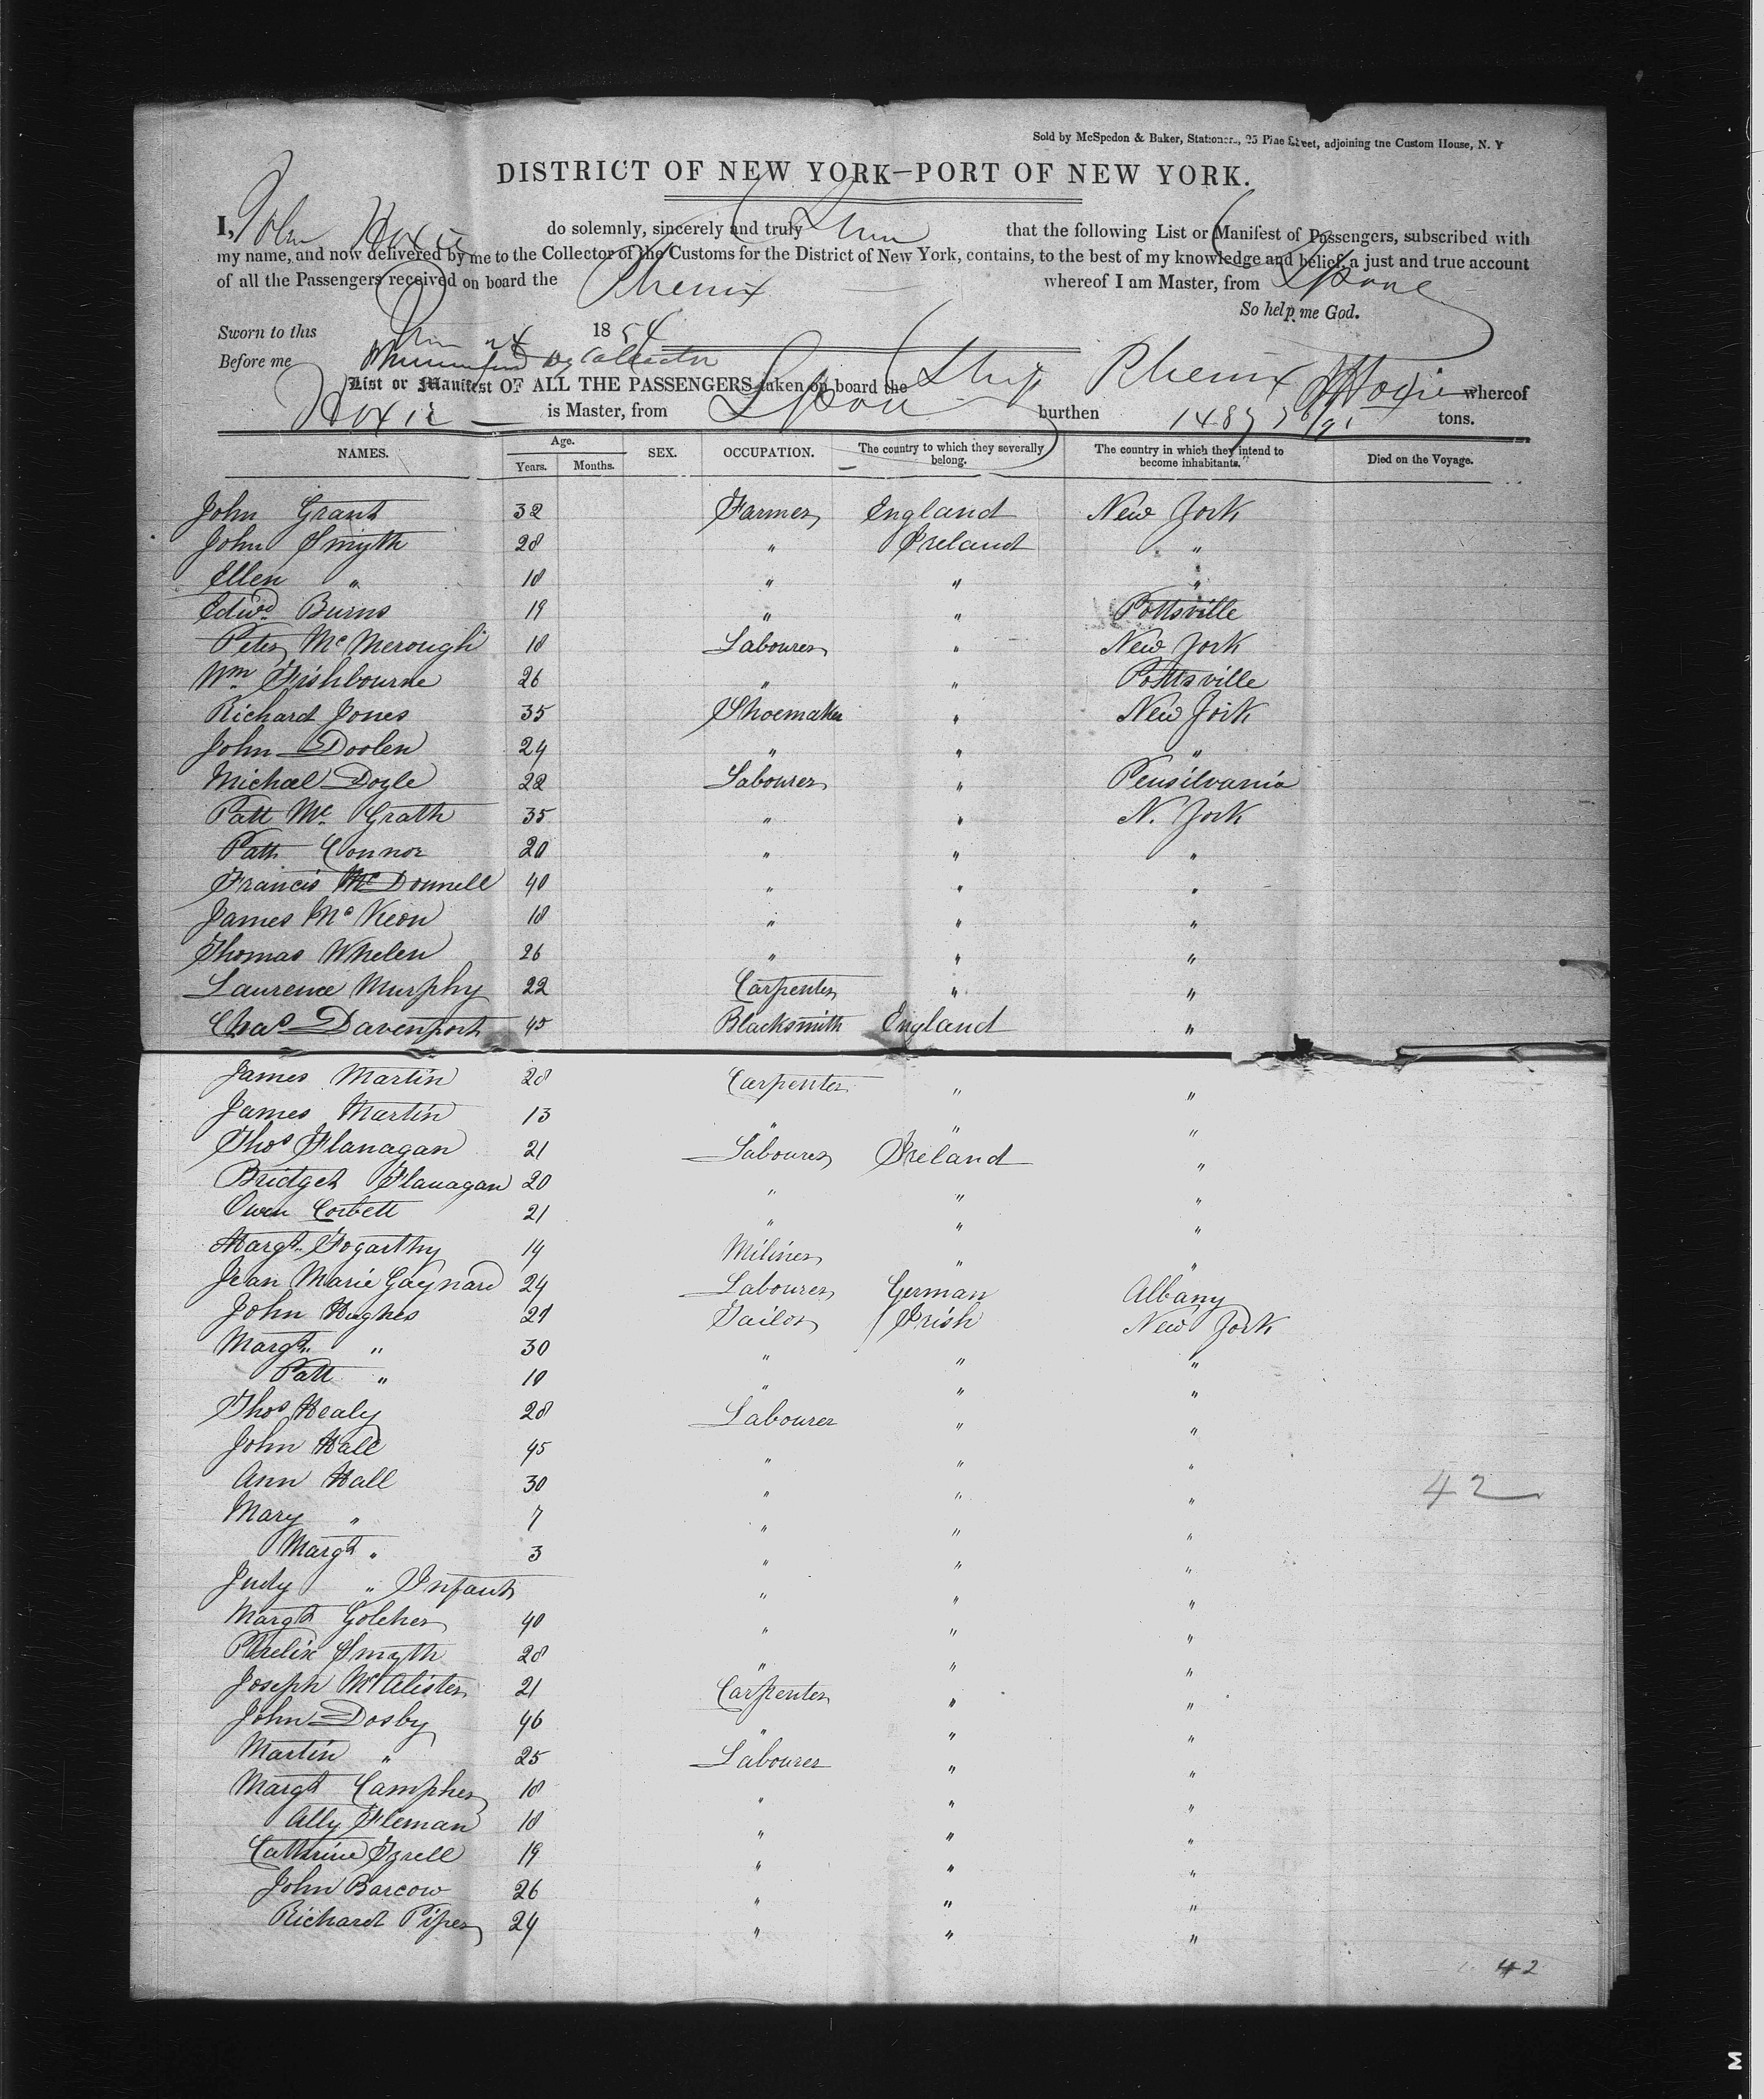 Sold by McSpedon & Baker, Stationers, 25 Pine Street, adjoining the Custom House, N. Y
DISTRICT OF NEW YORK—PORT OF NEW YORK.
I, John Hoxie do solemnly, sincerely and truly that the following List or Manifest of Passengers, subscribed with
my name, and now delivered by me to the Collector of the Customs for the District of New York, contains, to the best of my knowledge and belief, a just and true account
of all the Passengers received on board the Phenix whereof I am Master, from Lpool
So help me God.
Sworn to this 24 1854
Before me Dy Collector
List or Manifest OF ALL THE PASSENGERS taken on board the Ship Phenix whereof
Hoxie is Master, from Lpool burthen 1487 tons.
NAMES. Age. Years. Months. SEX. OCCUPATION. The country to which they severally belong. The country in which they intend to become inhabitants. Died on the Voyage.
John Grant 32 Farmer England New York
John Smyth 28 " Ireland "
Ellen " 18 " " "
Edwd Burns 19 " " Pottsville
Peter McMerough 18 Labourer " New York
Wm Fishbourne 26 " " Pottsville
Richard Jones 35 Shoemaker " New York
John Doolen 24 " " "
Michael Doyle 22 Labourer " Pensilvania
Patt Mc Grath 35 " " N. York
Patt Connor 20 " " "
Francis McDonnell 40 " " "
James McKeon 18 " " "
Thomas Whelen 26 " " "
Laurence Murphy 22 Carpenter " "
Chas Davenport 45 Blacksmith England "
James Martin 28 Carpenter " "
James Martin 13 " " "
Thos Flanagan 21 Labourer Ireland "
Bridget Flanagan 20 " " "
Owen Corbett 21 " " "
Margt Fogarthy 14 Miliner " "
Jean Marie Gaynard 24 Labourer German Albany
John Hughes 21 Tailor Irish New York
Margt " 30 " " "
Patt " 10 " " "
Thos Healy 28 Labourer " "
John Hall 45 " " "
Ann Hall 30 " " "
42
Mary " 7 " " "
Margt " 3 " " "
Judy " Infant " " "
Margt Golcher 40 " " "
Phelix Smyth 28 " " "
Joseph McAlister 21 Carpenter " "
John Dosby 46 " " "
Martin " 25 Labourer " "
Margt Campher 18 " " "
Ally Fleman 18 " " "
Cathrine Tyrell 19 " " "
John Barcow 26 " " "
Richard Piper 24 " " "
42
M